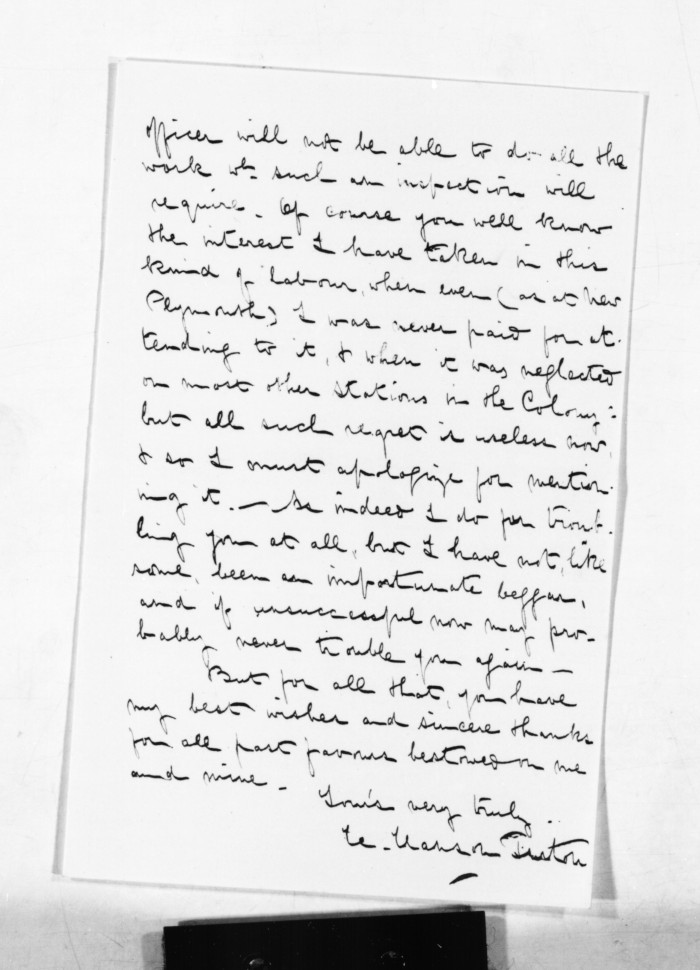 officer will not be able to do all the
work wh. such an inspection will
require. Of course you well know
the interest I have taken in this
kind of labour, when even (as at New
Plymouth) I was never paid for at.
tending to it, & when it was neglected
on most other Stations in the Colony:
but all such regret is useless now,
& so I must apologize for mention.
ing it. — As indeed I do for troub.
ling you at all, but I have not, like
some, been an importunate beggar,
and if unsuccessful now may pro-
bably never trouble you again —
But for all that, you have
my best wishes and sincere thanks
for all past favours bestowed on me
and mine.
Yours very truly